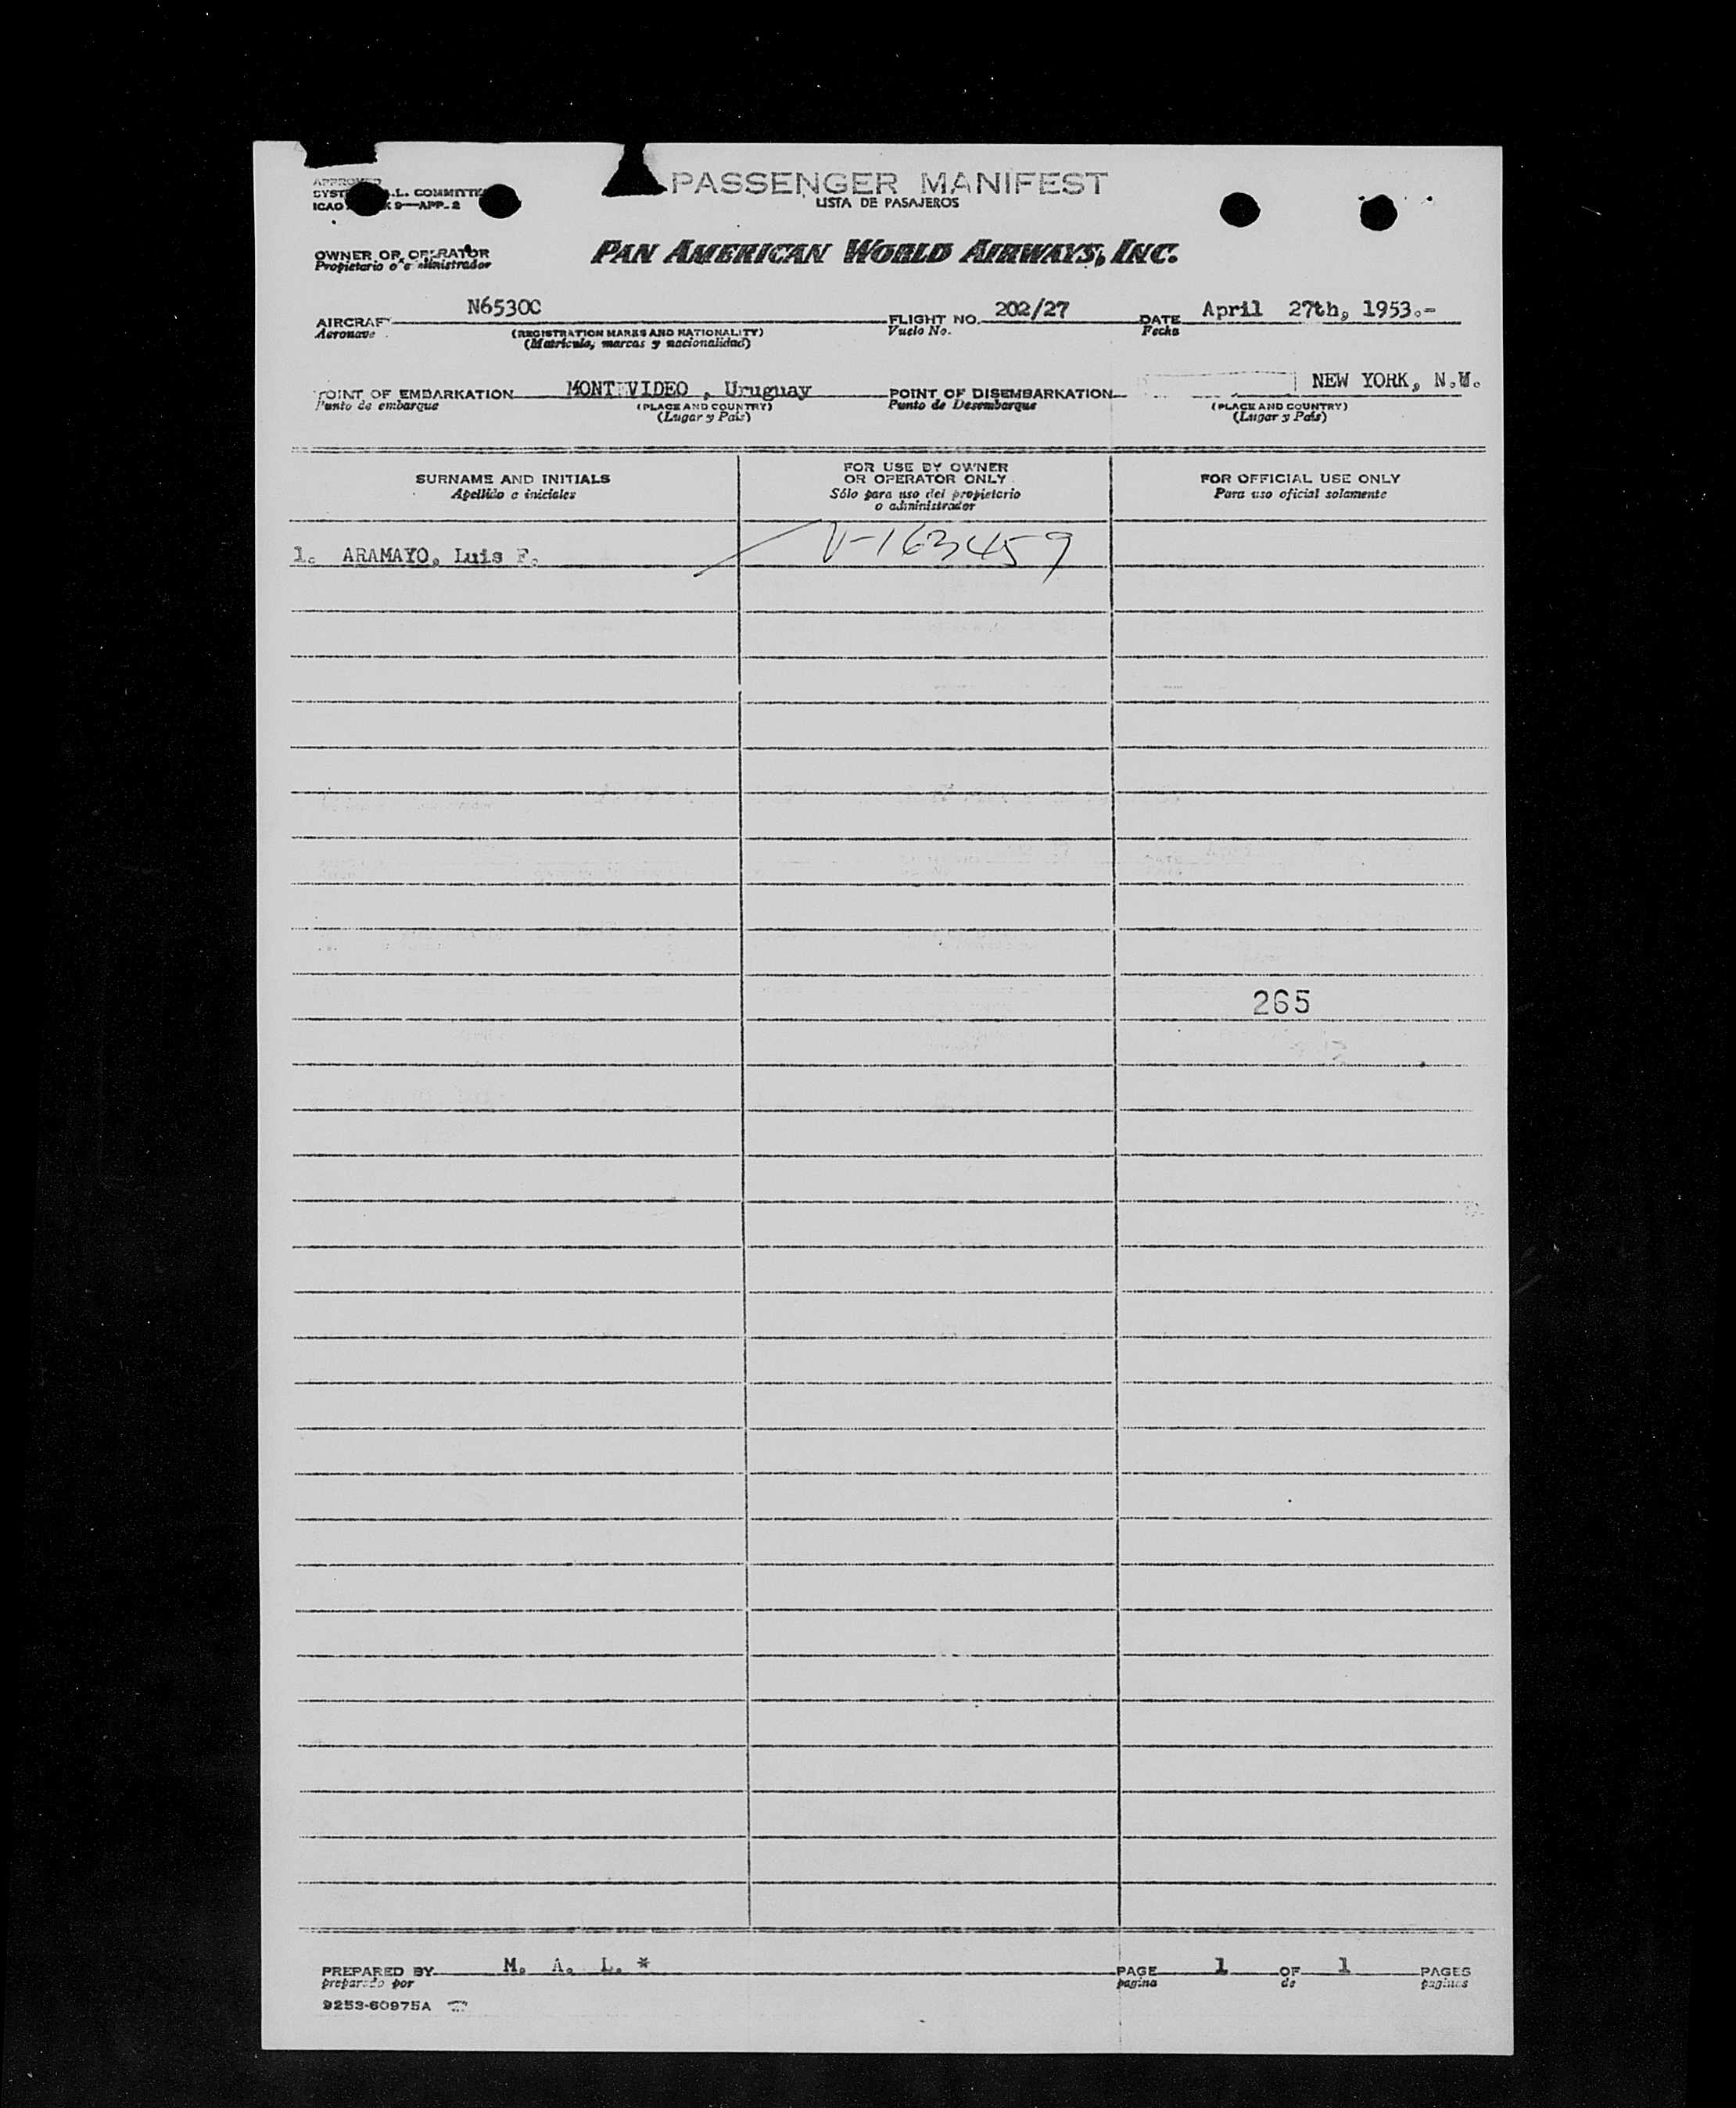 PASSENGER MANIFEST
LISTA DE PASAJEROS
APPROVED
L. COMMITTEE
ICAO 9—APP. 2
OWNER OR OPERATOR
Propietario o
PAN AMERICAN WORLD AIRWAYS, INC.
AIRCRAFT N6530C FLIGHT NO. 202/27 DATE April 27th, 1953.-
Aeronave (REGISTRATION MARKS AND NATIONALITY) Vuelo No. Fecha
(Matrícula, marcas y nacionalidad)
POINT OF EMBARKATION MONTEVIDEO , Uruguay POINT OF DISEMBARKATION NEW YORK,
Punto de embarque (PLACE AND COUNTRY) Punto de Desembarque (PLACE AND COUNTRY)
(Lugar y País) (Lugar y País)
SURNAME AND INITIALS
Apellido e iniciales
FOR USE BY OWNER
OR OPERATOR ONLY
Sólo para uso del propietario
o administrador
FOR OFFICIAL USE ONLY
Para uso oficial solamente
1. ARAMAYO, Luis F. V-163459
265
PREPARED BY M. A. L. * PAGE 1 OF 1 PAGES
preparado por pagina de paginas
9253-60975A